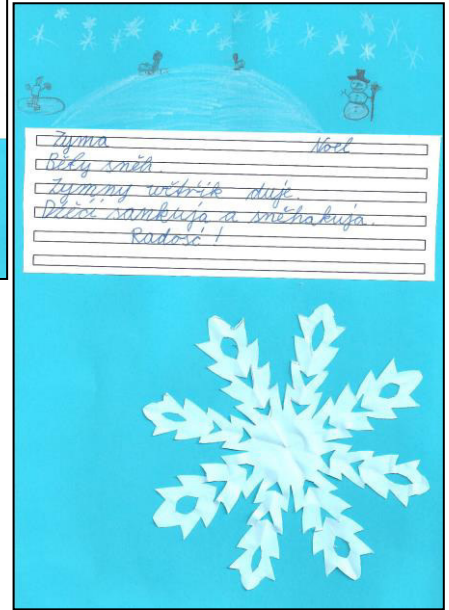 Zyma Noel
Běły sněh.
Zymny wětřik duje.
Dźěći sankuja a sněhakuja.
Radosć!